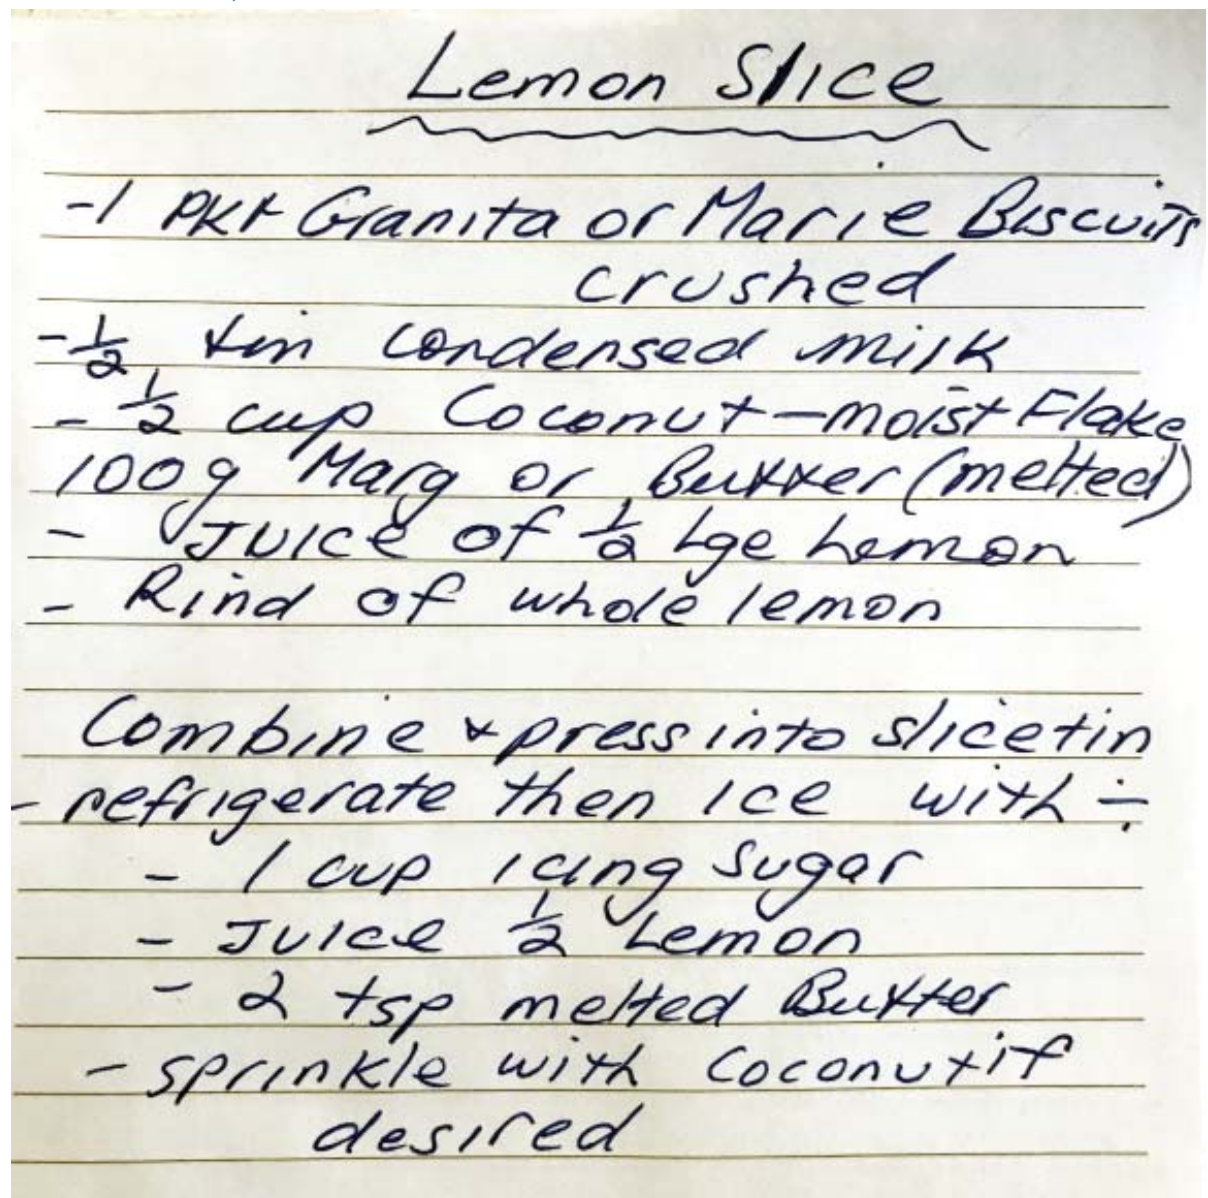 Lemon Slice
-1 Pkt Granita or Marie Biscuits
crushed
-½ tin condensed milk
- ½ cup Coconut-moist Flake
100g Marg or Butter (melted)
- Juice of ½ Lge Lemon
- Rind of whole lemon
Combine & press into slice tin
- refrigerate then ice with :-
- 1 cup icing sugar
- Juice ½ Lemon
- 2 tsp melted Butter
- sprinkle with Coconut if
desired